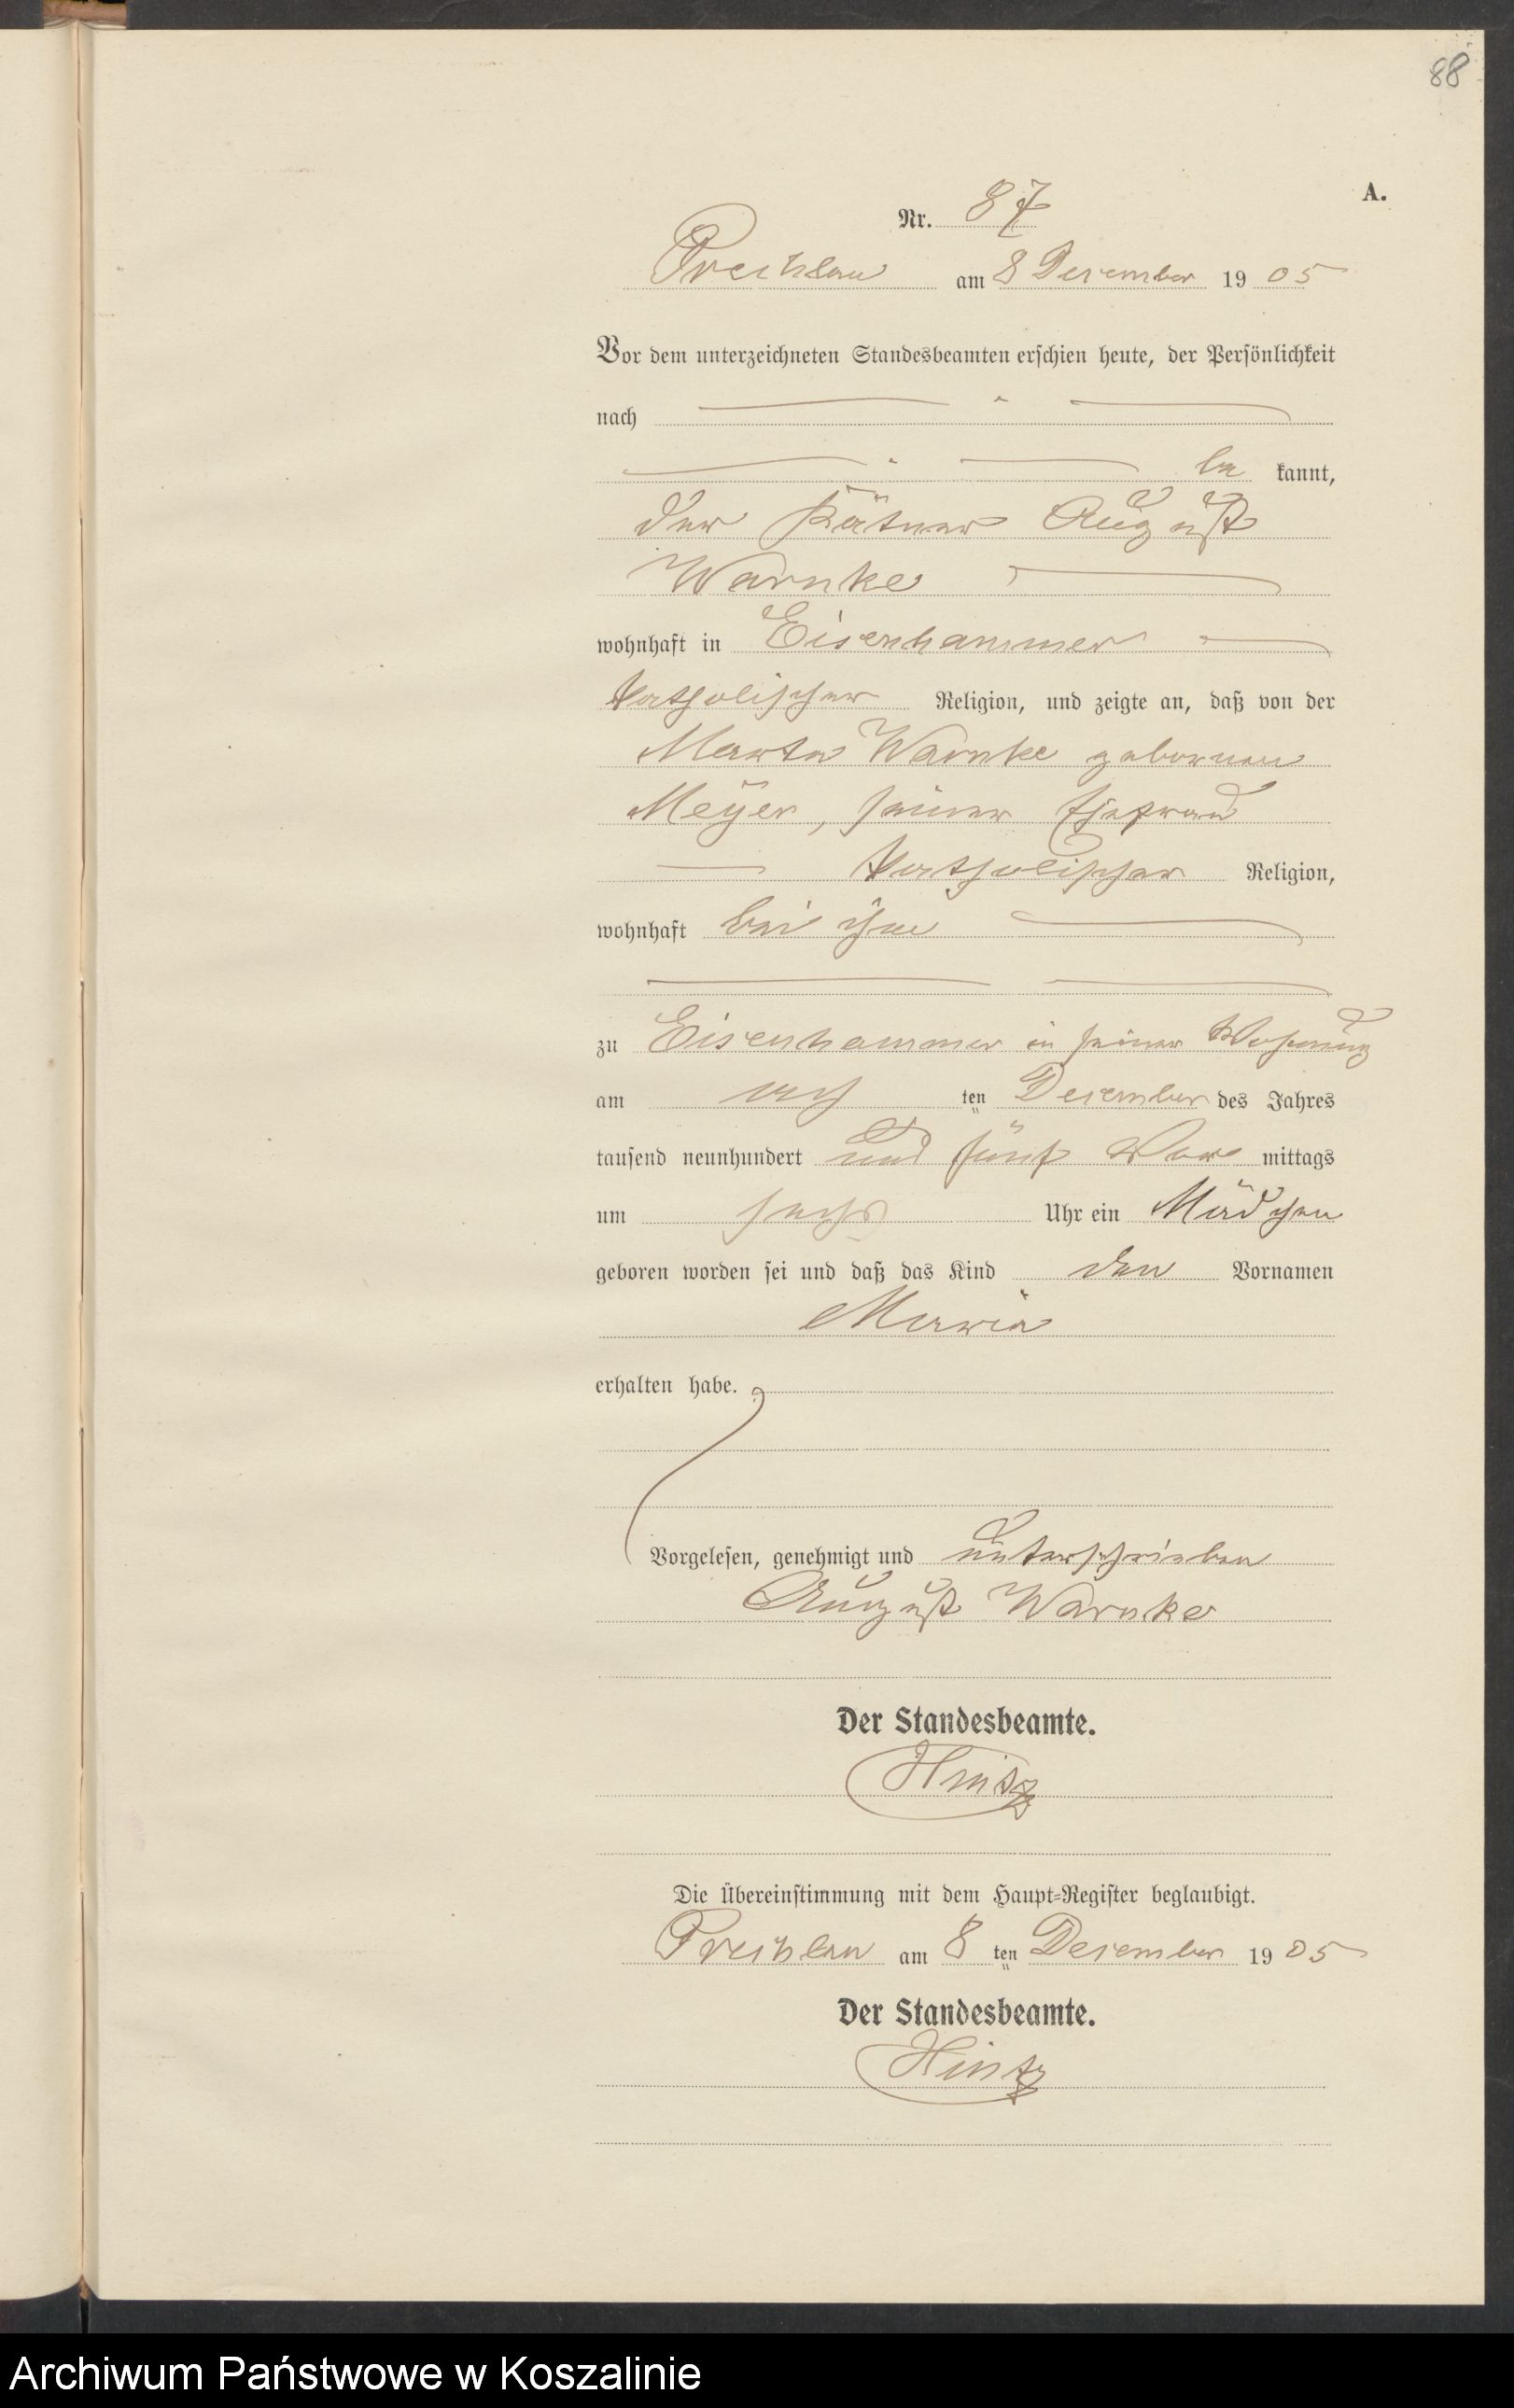 88
A.
Nr. 87
Prechlau am 8 Dezember 1905
Vor dem unterzeichneten Standesbeamten erschien heute, der Persönlichkeit
nach
be kannt,
der Kätner August
Warnke
wohnhaft in Eisenhammer
katholischer Religion, und zeigte an, daß von der
Marta Warnke geborenen
Meyer, seiner Ehefrau
katholischer Religion,
wohnhaft bei ihm
zu Eisenhammer in seiner Wohnung
am ach ten Dezember des Jahres
tausend neunhundert und fünf Vor mittags
um sechs Uhr ein Mädchen
geboren worden sei und daß das Kind den Vornamen
Maria
erhalten habe.
Vorgelesen, genehmigt und unterschrieben
August Warnke
Der Standesbeamte.
Hintz
Die Übereinstimmung mit dem Haupt-Register beglaubigt.
Prechlau am 8 ten Dezember 1905
Der Standesbeamte.
Hintz
Archiwum Państwowe w Koszalinie